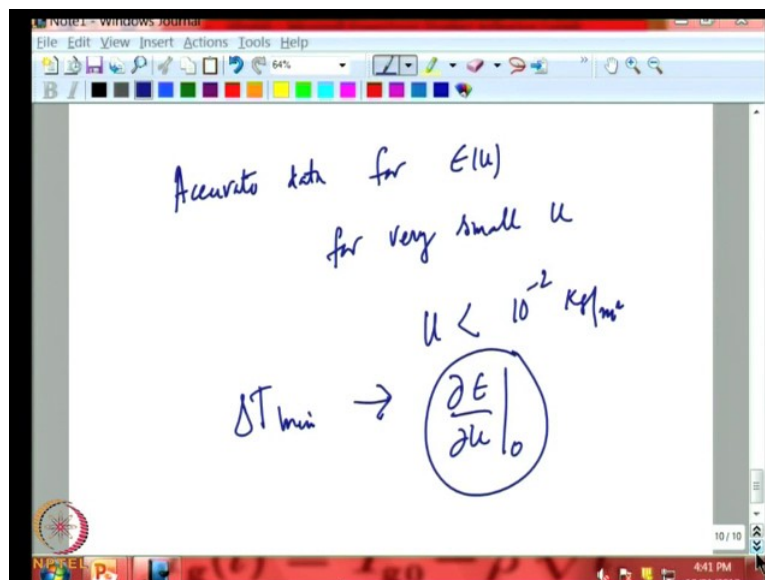 Note1 - Windows Journal
File Edit View Insert Actions Tools Help
64%
B I
Accurate data for ϵ(u)
for very small u
u < 10⁻² kg/m²
ΔT min → ∂ϵ/∂u |₀
10 / 10
NPTEL
4:41 PM